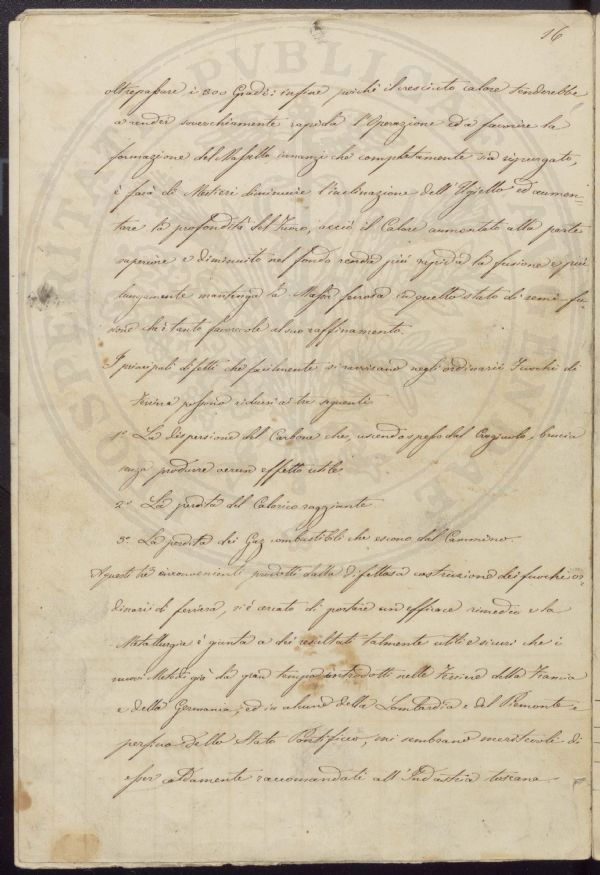 16
oltrepassare i 300 Gradi: infine poichè il cresciuto calore tenderebbe
a render soverchiamente rapida l'Operazione ed a favorire la
formazione del Massello innanzi che completamente sia ripurgato,
è farà di Mestieri diminuire l'inclinazione dell'Ugello ed aumen-
tare la profondità del Fuoco, acciò il Calore aumentato alla parte
superiore e diminuito nel fondo renda più rapida la fusione e più
lungamente mantenga la Massa ferrosa in quello stato di semi-fu-
sione ch'è tanto favorevole al suo raffinamento.
I principali difetti che facilmente si ravvisano negli ordinarii Fuochi di
Ferriera possono ridursi ai tre seguenti
1.º La dispersione del Carbone che, uscendo spesso dal Crogiuolo, brucia
senza produrre verun effetto utile
2.º La perdita del Calorico raggiante
3.º La perdita dei Gaz combustibili che escono dal Cammino.
A questi tre inconvenienti prodotti dalla difettosa costruzione dei fuochi or-
dinari di ferriera, si è cercato di portare un efficace rimedio e la
Metallurgia è giunta a dei resultati talmente utili e sicuri che i
nuovi Metodi già da gran tempo introdotti nelle Ferriere della Francia
e della Germania, ed in alcune della Lombardia e del Piemonte e
persino dello Stato Pontificio, mi sembrano meritevoli di
esser caldamente raccomandati all'Industria toscana.
PVBLICA